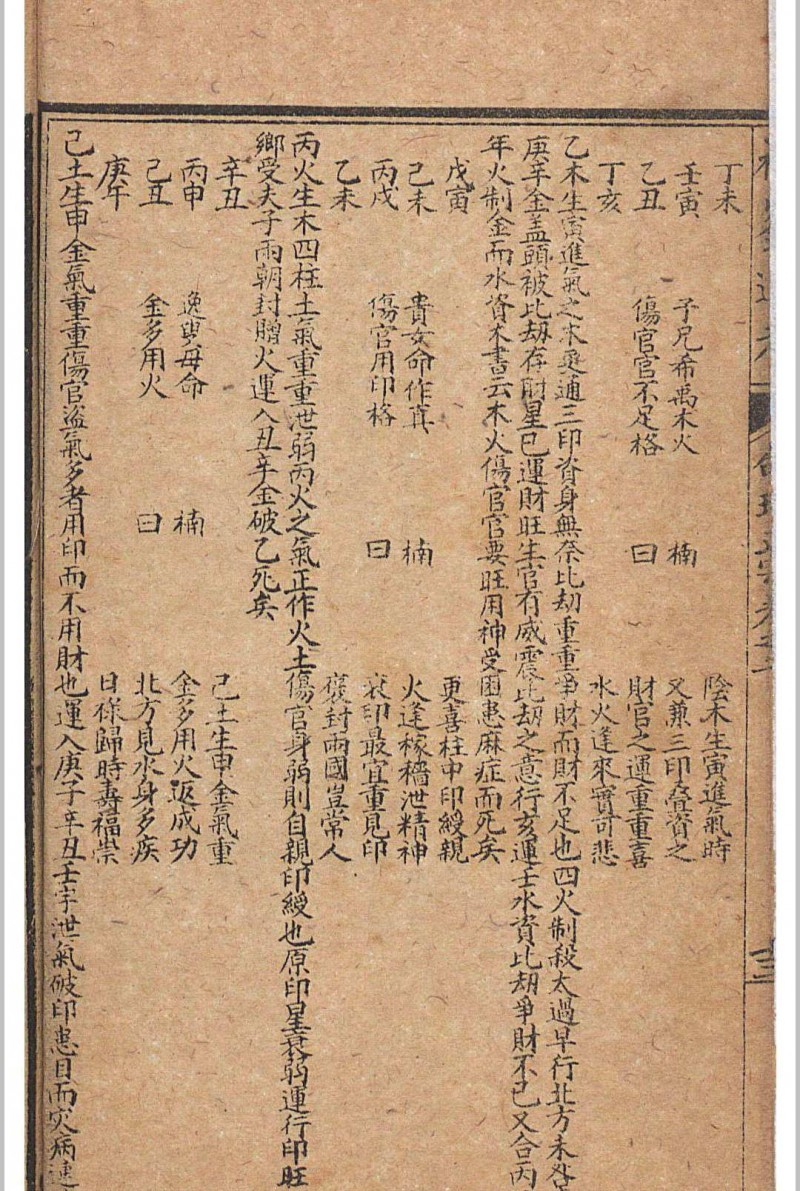 丁未
壬寅　子兄希禹木火　楠
乙丑　傷官官不足格　曰
丁亥
陰木生寅進氣時
又兼三印叠資之
財官之運重重喜
水火逢來實可悲
乙木生寅進氣之木亟通三印資身無奈比刼重重爭財而財不足也四火制殺太過早行北方未
庚辛金盖頭被比刼存財星巳運財旺生官有威震比刼之意行亥運壬水資比刼爭財不已又合丙
年火制金而水資木書云木火傷官官要旺用神受困患麻症而死矣
戊寅
己未　貴女命作真　楠
丙戌　傷官用印格　曰
乙未
更喜柱中印綬親
火逢稼穡泄精神
衰印最宜重見印
褒封兩國豈常人
丙火生木四柱土氣重重泄弱丙火之氣正作火土傷官身弱則自親印綬也原印星衰弱運行印旺
鄉受夫子兩朝封贈火運入丑辛金破乙死矣
辛丑
丙申　逸叟母命　楠
己丑　金多用火　曰
庚午
己土生申金氣重
金多用火返成功
北方見水身多疾
日後歸時壽福崇
己土生申金氣重重傷官盜氣多者用印而不用財也運入庚子辛丑壬字泄氣破印患目而灾病連